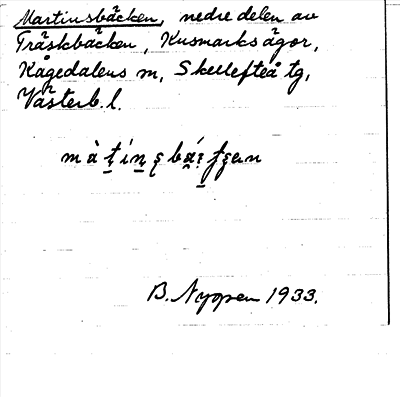 Martinsbäcken, nedre delen av
Träskbäcken, Kusmarks ägor,
Kågedalens sn, Skellefteå tg,
Västerb. l.
B. Nygren 1933.